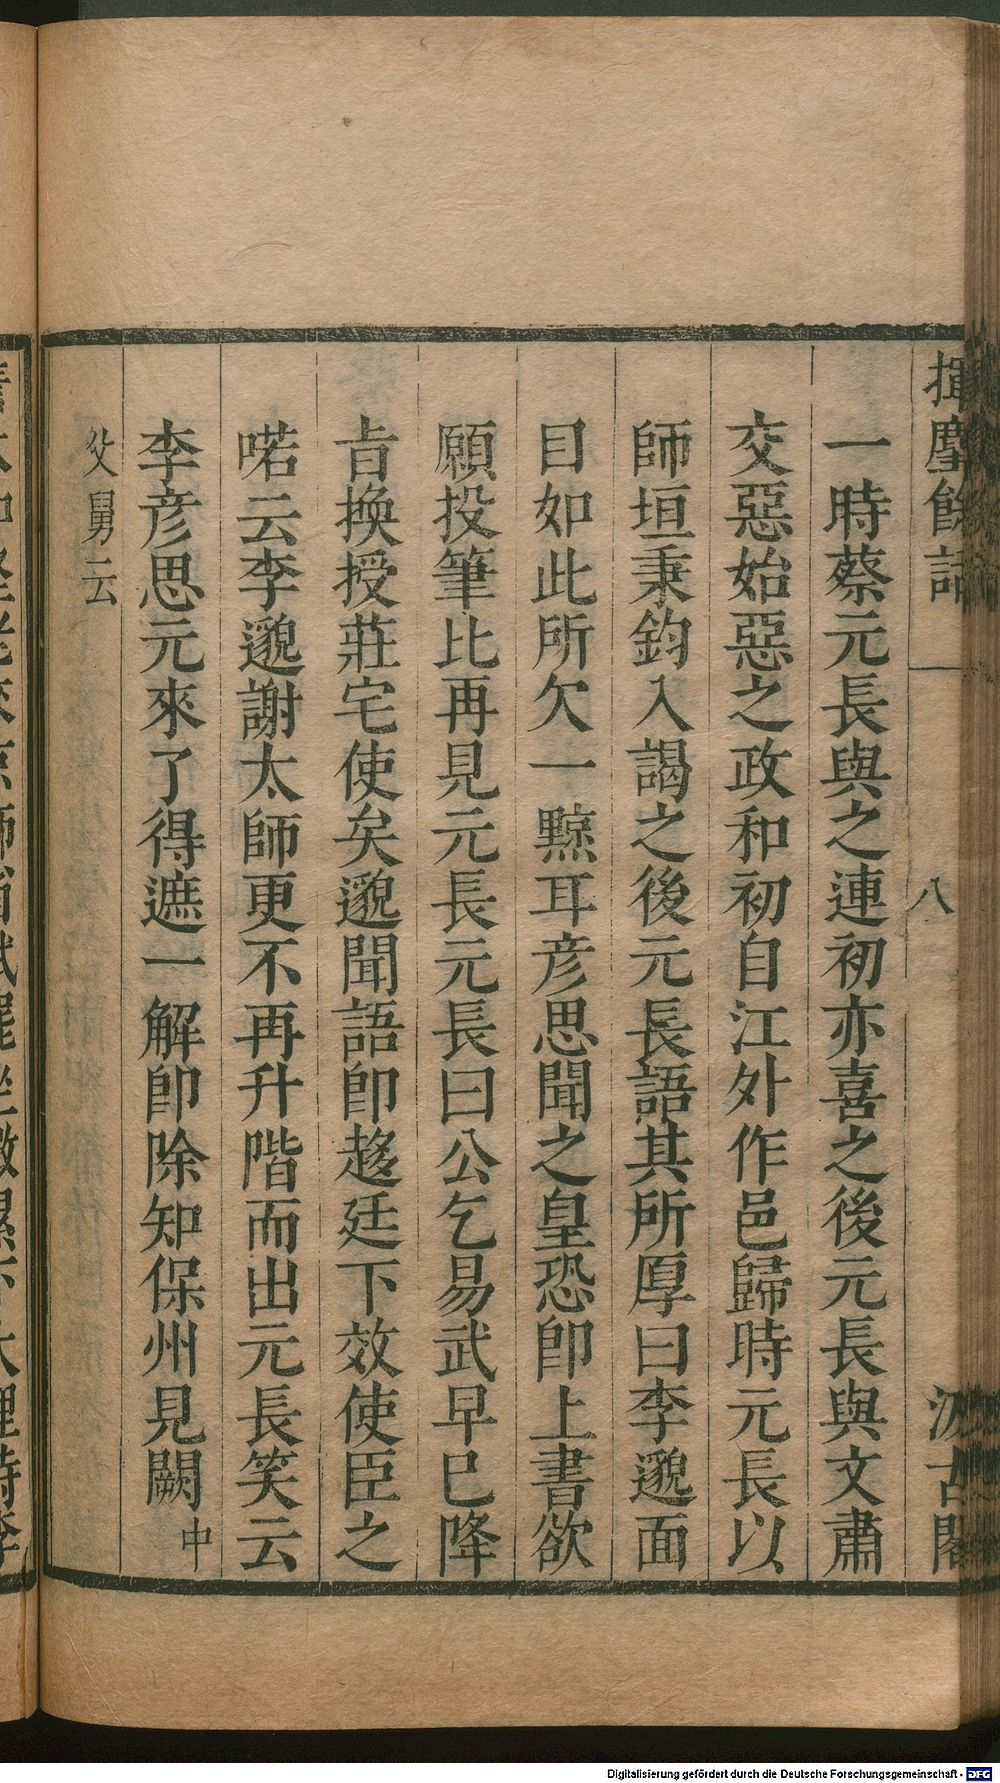 揮麈餘話
八
汲古閣
一時蔡元長與之連初亦喜之後元長與文肅
交惡始惡之政和初自江外作邑歸時元長以
師垣秉鈞入謁之後元長語其所厚曰李邈面
目如此所欠一黥耳彦思聞之皇恐卽上書欲
願投筆比再見元長元長曰公乞易武早已降
㫖換授莊宅使矣邈聞語卽趍廷下效使臣之
喏云李邈謝太師更不再升階而出元長笑云
李彦思元來了得遮一解卽除知保州見闕 中
父舅云
Digitalisierung gefördert durch die Deutsche Forschungsgemeinschaft - DFG